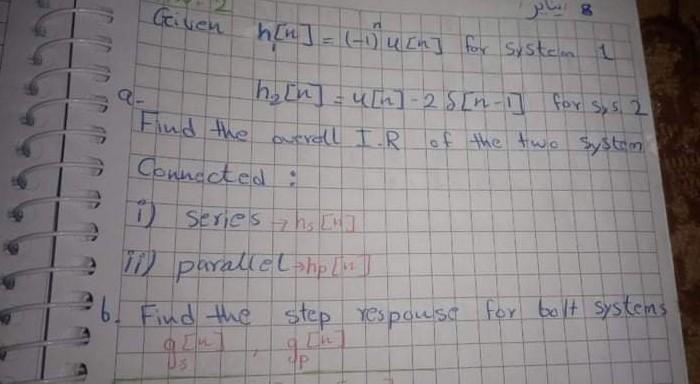 8 يناير
Given h₁[n] = (-1)ⁿ u[n] for system 1
a- h₂[n] = u[n] - 2 δ[n-1] for sys 2
Find the overall I.R of the two system
Connected :
i) series → hs[n]
ii) parallel → hp[n]
b. Find the step response for bolt systems
gs[n] , gp[n]